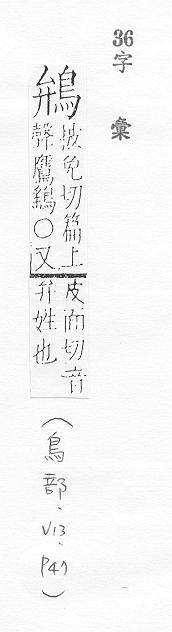 36字彙
鴘
披免切篇上
聲鷹鷂〇又
皮面切音
弁姓也
（鳥部、V13、P47）